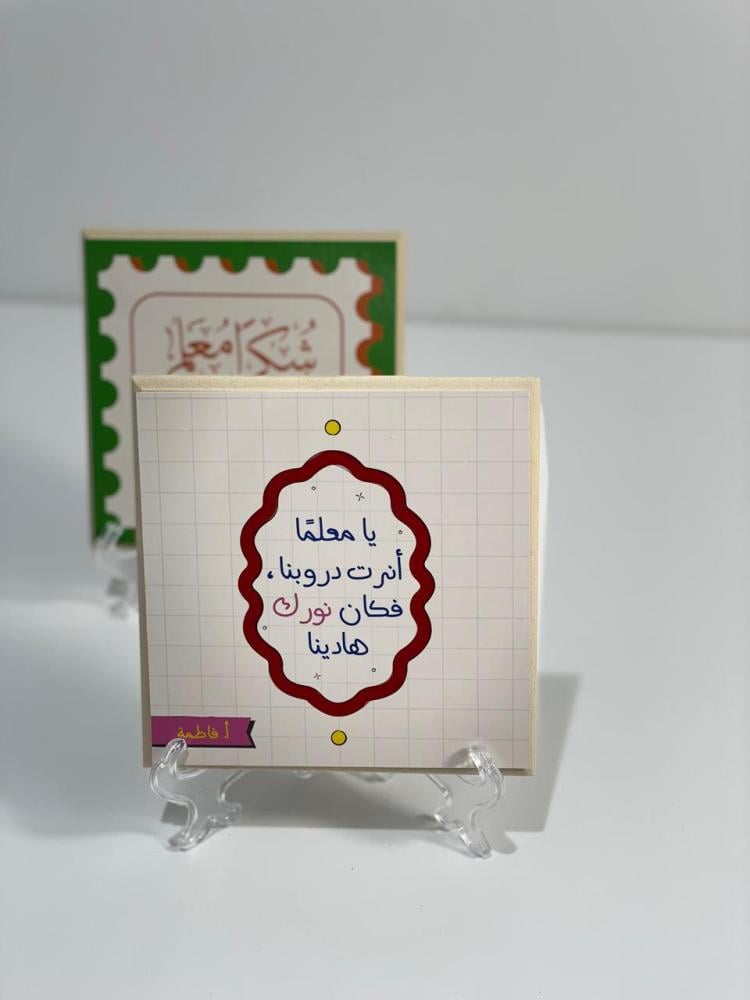 شُكرًا مُعلم
يا معلمًا
أنرت دروبنا،
فكان نورك
هادينا
أ. فاطمة